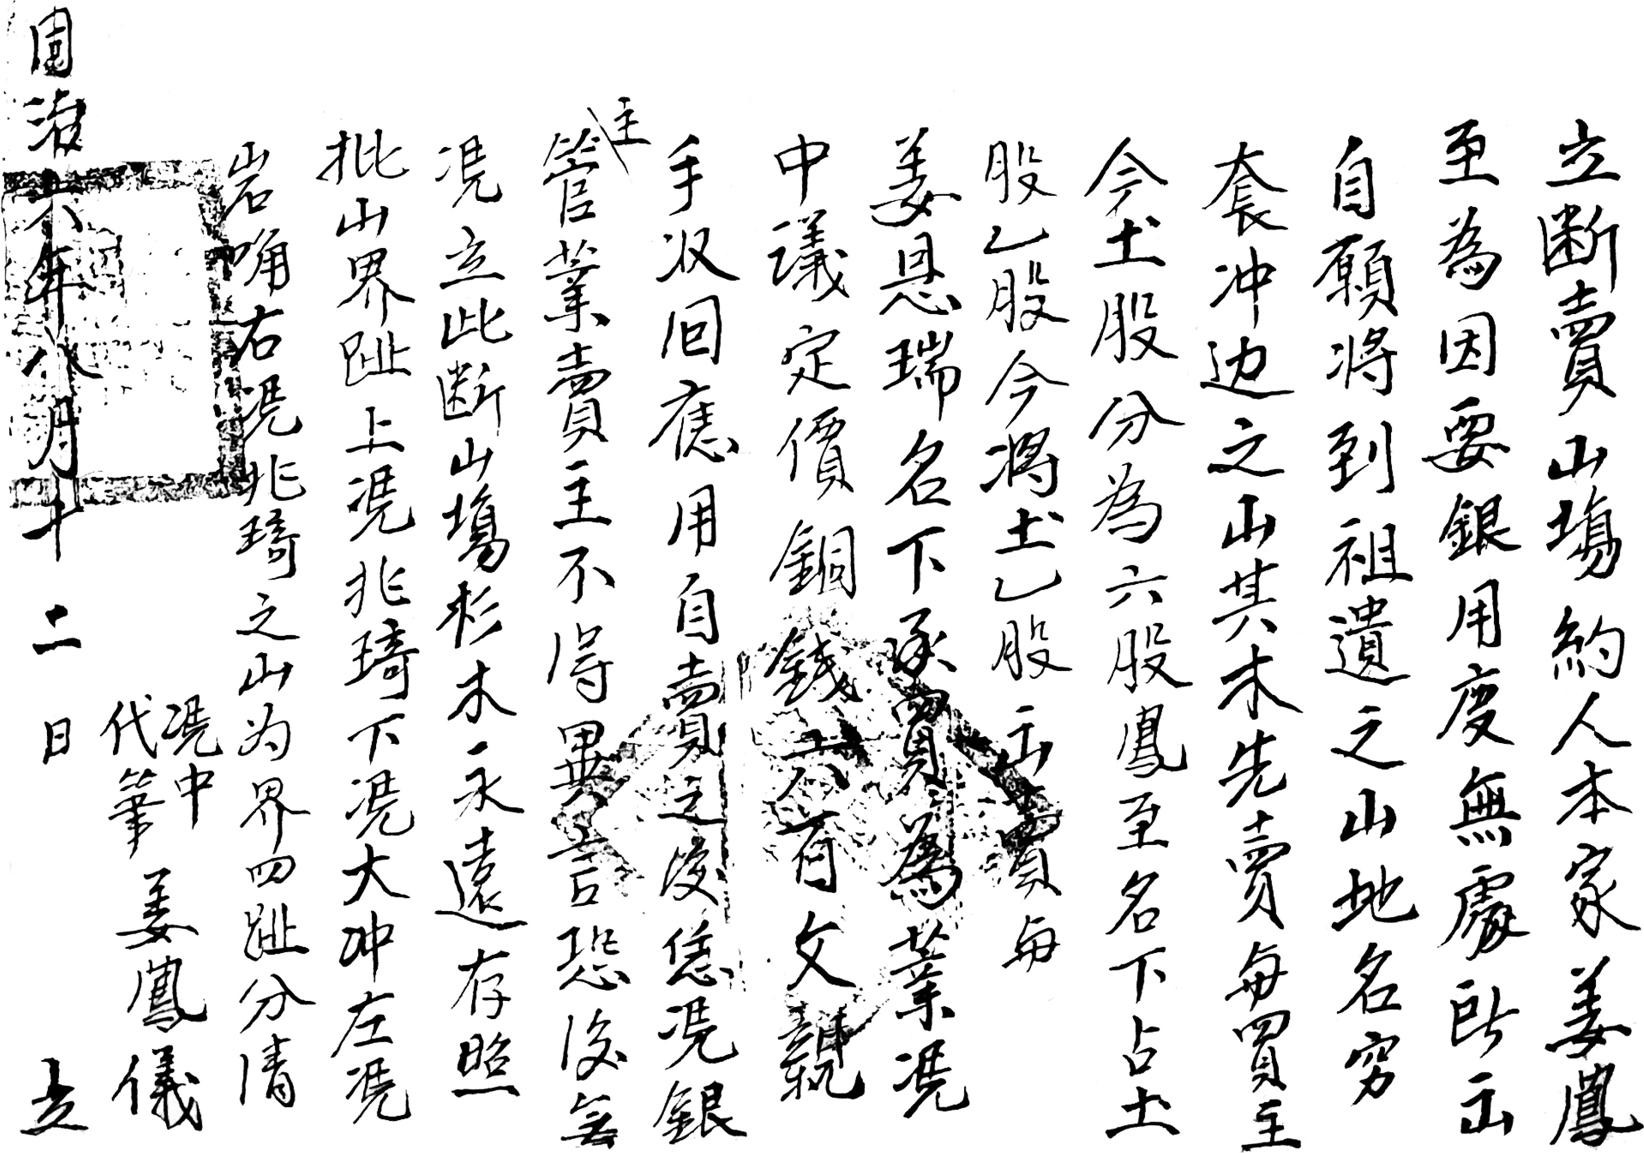 立断賣山塲約人本家姜鳳
至為因要銀用度無處所出
自願將到祖遺之山地名穷
套冲边之山其木先賣每買主
今土股分為六股鳳至名下占土
股乙股今將土乙股出賣每
姜恩瑞名下承買為業凴
中議定價銅錢六百文親
手收回應用自賣之後恁凴銀
主
管業賣主不得異言恐後無
凴立此断山塲杉木永遠存照
批山界趾上凴兆琦下凴大冲左凴
岩嘴右凴兆琦之山为界四趾分清
凴中
代筆 姜鳳儀
同治六年八月十二日 立